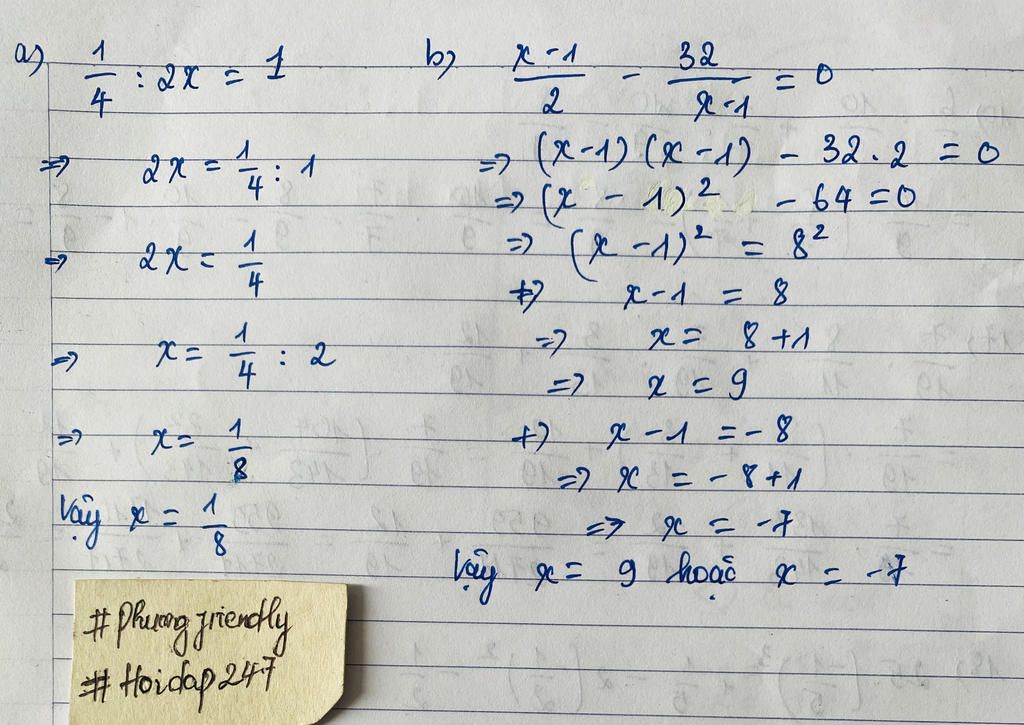 a) 1/4 : 2x = 1
=> 2x = 1/4 : 1
=> 2x = 1/4
=> x = 1/4 : 2
=> x = 1/8
Vậy x = 1/8
b) (x-1)/2 - 32/(x-1) = 0
=> (x-1)(x-1) - 32.2 = 0
=> (x-1)² - 64 = 0
=> (x-1)² = 8²
+) x-1 = 8
=> x = 8+1
=> x = 9
+) x-1 = -8
=> x = -8+1
=> x = -7
Vậy x = 9 hoặc x = -7
#Phuongfriendly
#Hoidap247